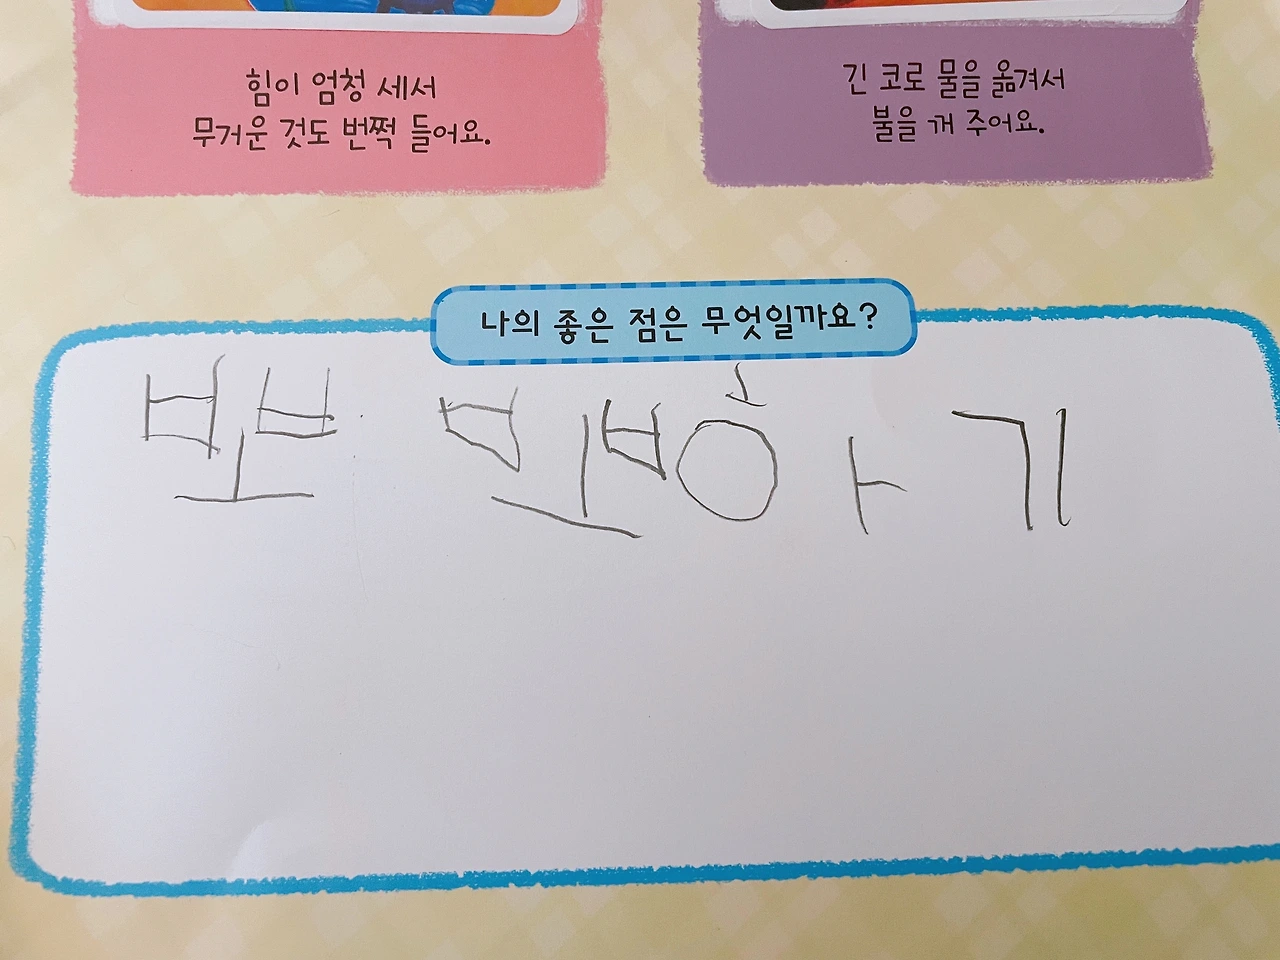 힘이 엄청 세서
무거운 것도 번쩍 들어요.
긴 코로 물을 옮겨서
불을 꺼 주어요.
나의 좋은 점은 무엇일까요?
뽀뽀하기